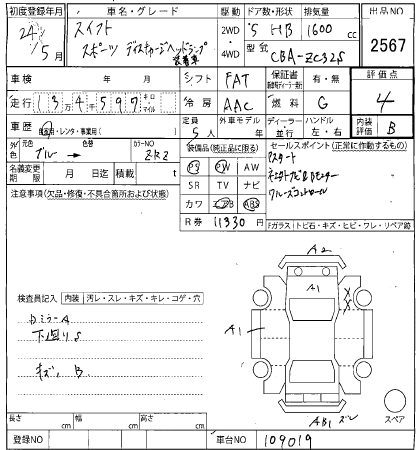 初度登録年月 車名・グレード 駆動 ドア数・形状 排気量 出品NO
24年 5月 スイフト スポーツ ディスチャージヘッドランプ装着車 2WD 4WD 5 HB 1600 cc 2567
型式 CBA-ZC32S
車検 年 月 シフト FAT 保証書 有・無 評価点
走行 134千597 キロ マイル 冷房 AAC 燃料 G 4
車歴 自家用・レンタ・事業用( ) 定員 5人 外車モデル 年 ディーラー 並行 ハンドル 左・右 内装評価 B
外色 元色 ブルー → 色替 カラーNO Z・R2
装備品(純正品に限る) セールスポイント(正常に作動するもの)
名義変更期限 月 日迄 積載 t
PS PW AW
SR TV ナビ
カワ エアB ABS
R券 11330 円
Pスタート
クルーズコントロール
注意事項(欠品・修復・不具合箇所および状態)
Fガラス トビ石・キズ・ヒビ・ワレ・リペア跡
検査員記入 内装 汚レ・スレ・キズ・キレ・コゲ・穴
ミラーA
下廻りS
キズ、B
A2
A1
A1
AB1 ズレ
スペア
長さ cm 幅 cm 高さ cm
登録NO 車台NO 109019